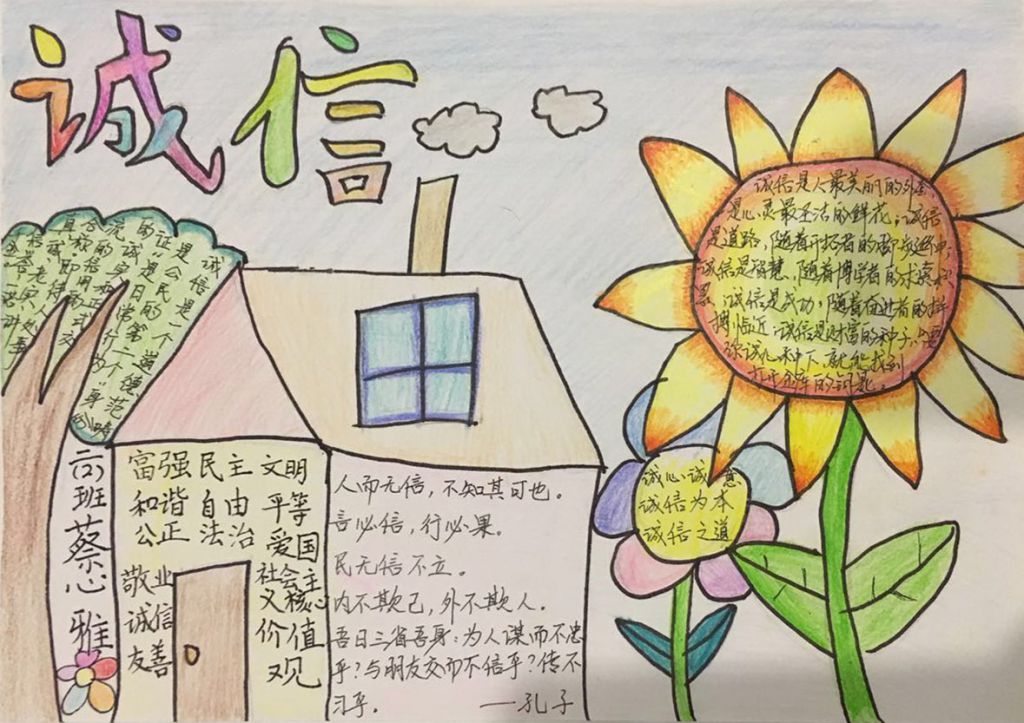 诚信
诚信是一个道德范
的证"是公民的第二个"身份
流
真称
诚信是人最美丽的外套
是心灵最圣洁的鲜花;诚信
是道路,随着开拓者的脚步延伸,
诚信是智慧,随着博学者的求索
累,诚信是成功,随着奋进者的拼
搏临近;诚信是财富的种子,
你诚心种下,就能找到
打开金库的钥匙。
诚心诚意
诚信为本
诚信之道
六(2)班蔡心雅
富强 民主 文明
和谐 自由 平等
公正 法治 爱国
敬业
诚信
友善
社会主
义核心
价值
观
人而无信,不知其可也。
言必信,行必果。
民无信不立。
内不欺己,外不欺人。
吾日三省吾身:为人谋而不忠
乎?与朋友交而不信乎?传不
习乎。 ——孔子